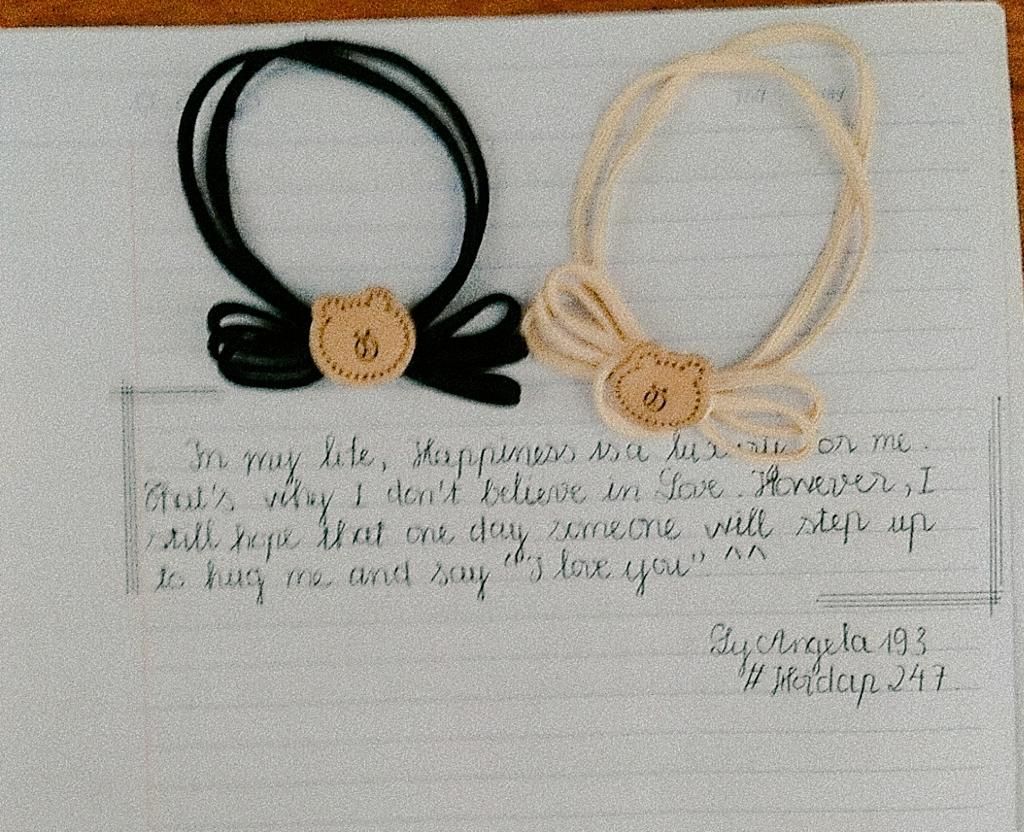 In my life, Happiness is a luxury for me.
That's why I don't believe in Love. However, I
still hope that one day someone will step up
to hug me and say "I love you" ^^
LyAngela193
#Hoidap247